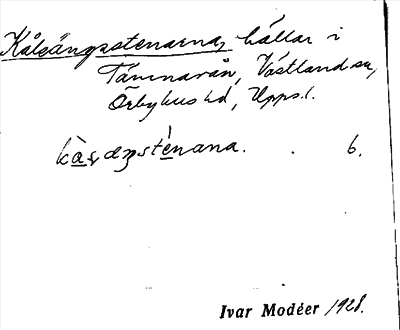 Kålängsstenarna, hällar i
Tämnarån, Västland sn,
Örbyhus hd, Upps. l.
stènana. . 6.
Ivar Modéer 1928.